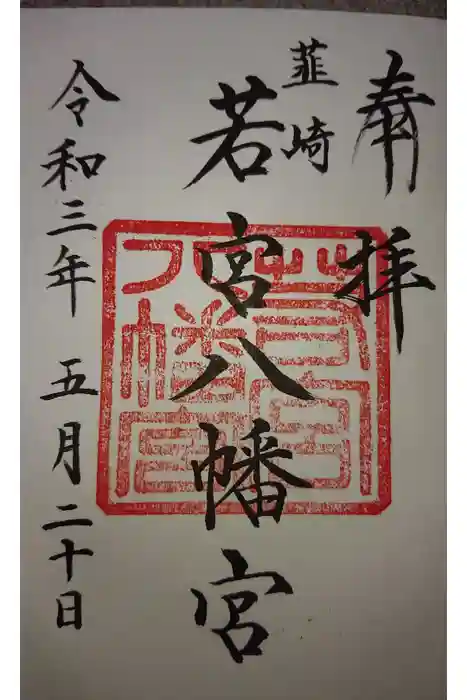 奉拝
韮崎
若宮八幡宮
令和三年 五月二十日
若宮
八幡宮